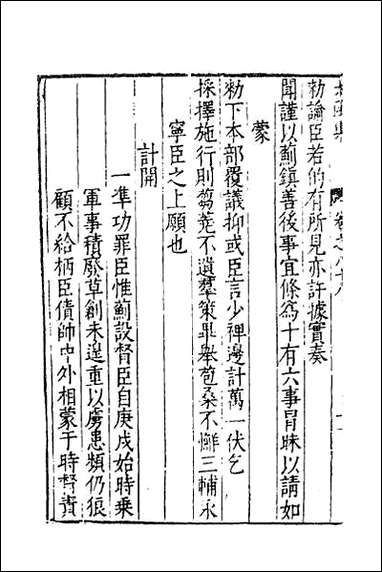 卷之八十八
勑諭臣若的有所見亦許據實奏
聞謹以薊鎮善後事宜條為十有六事冒昧以請如
蒙
勑下本部覆議抑或臣言少裨邊計萬一伏乞
採擇施行則芻蕘不遺羣策畢舉苞桑不懈三輔永
寧臣之上願也
計開
一凖功罪臣惟薊設督臣自庚戌始時乗
軍事積廢草創未遑重以虜患頻仍狼
顧不給柄臣債帥中外相蒙于時督責